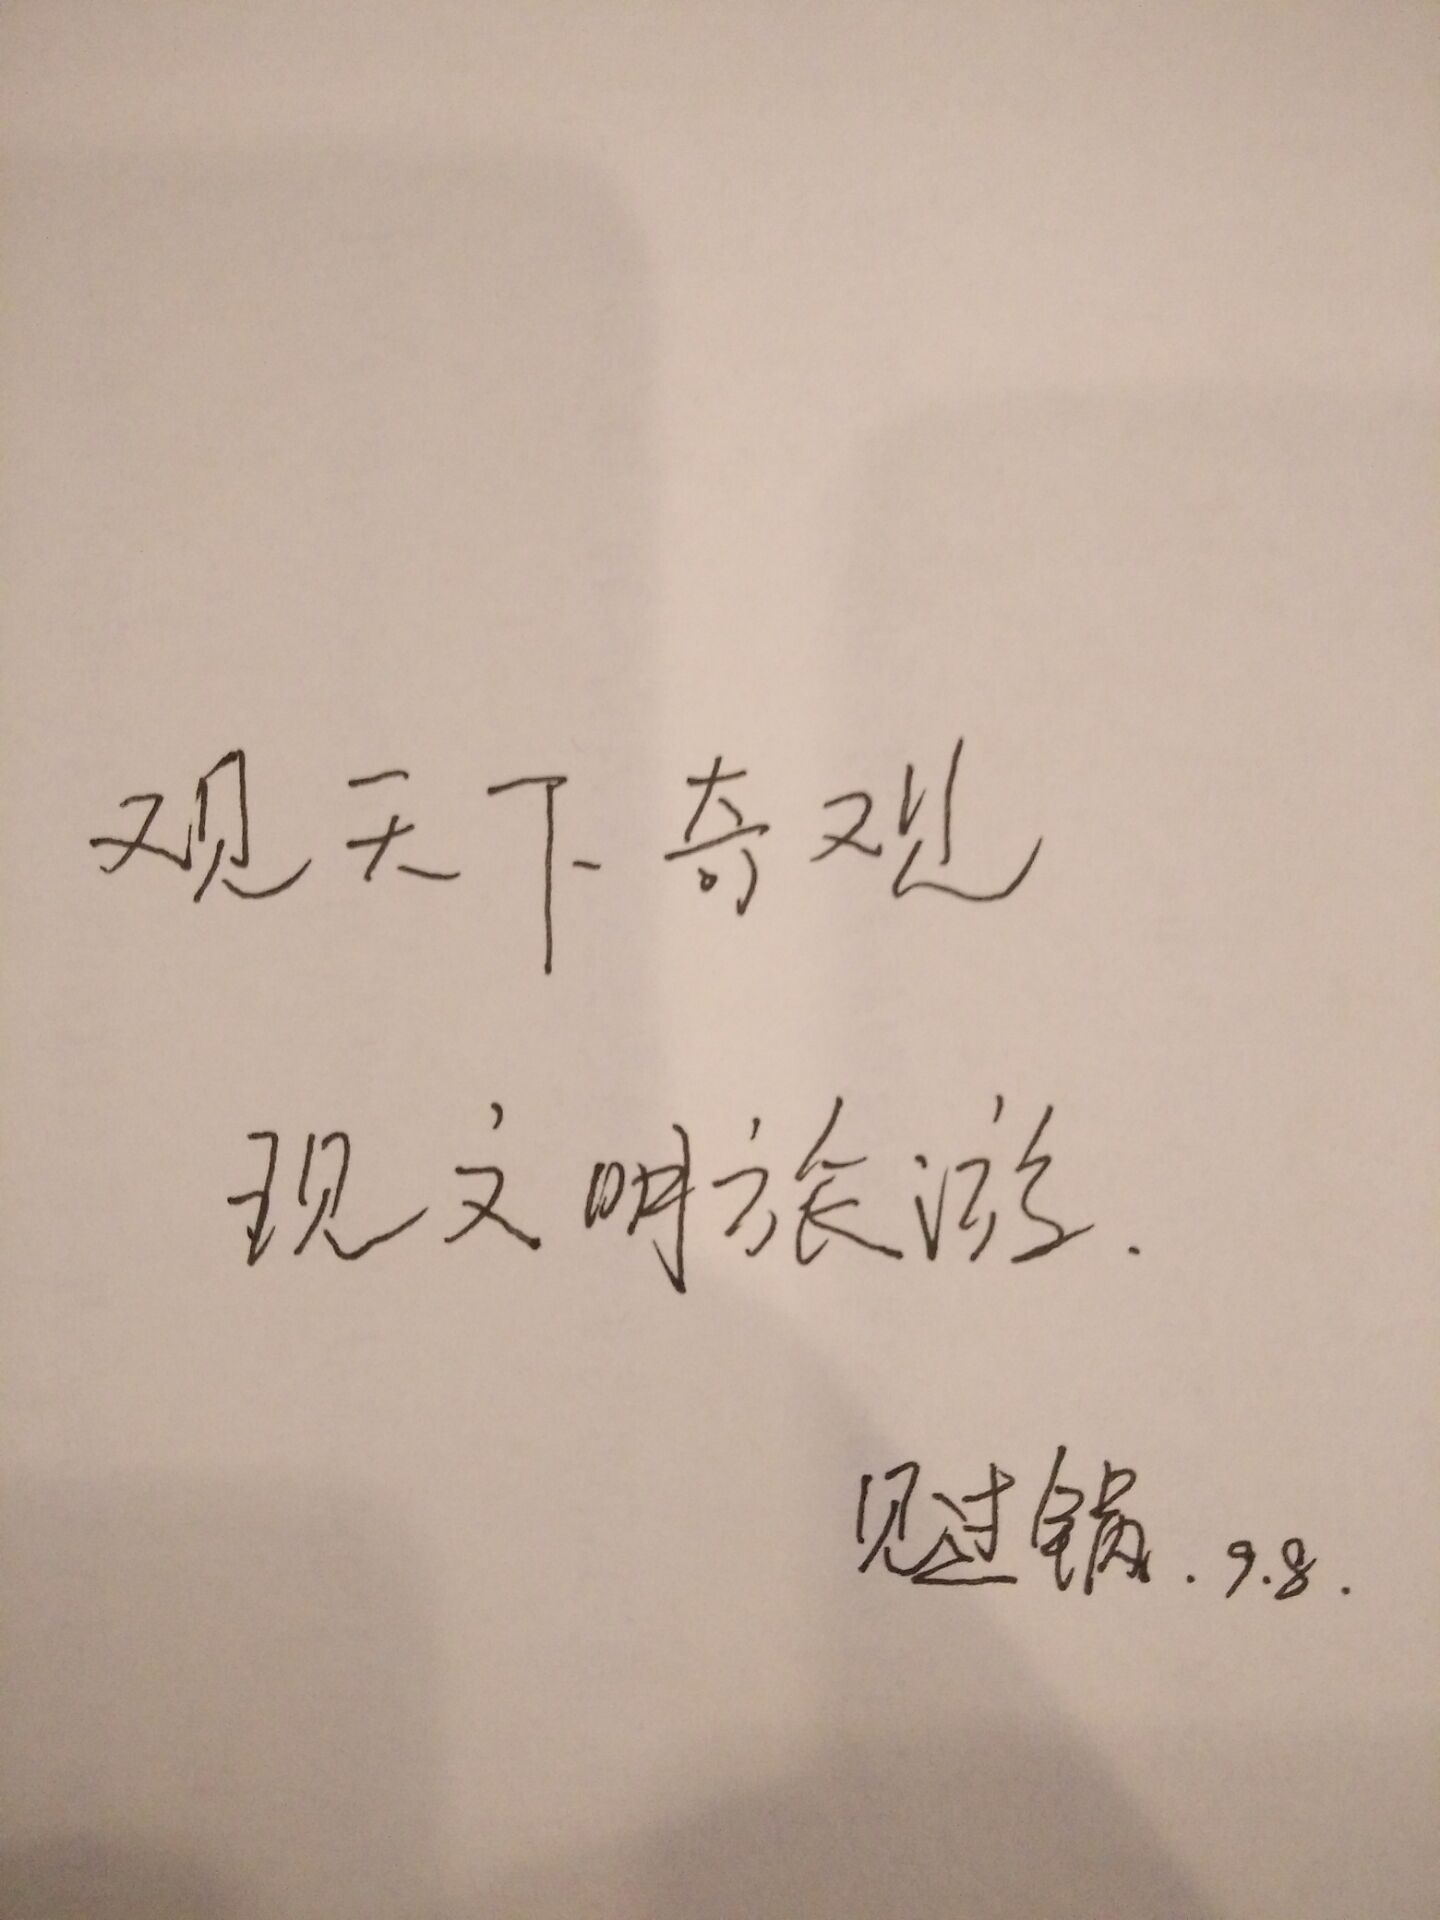 观天下奇观
现文明旅游.
见过锅.9.8.